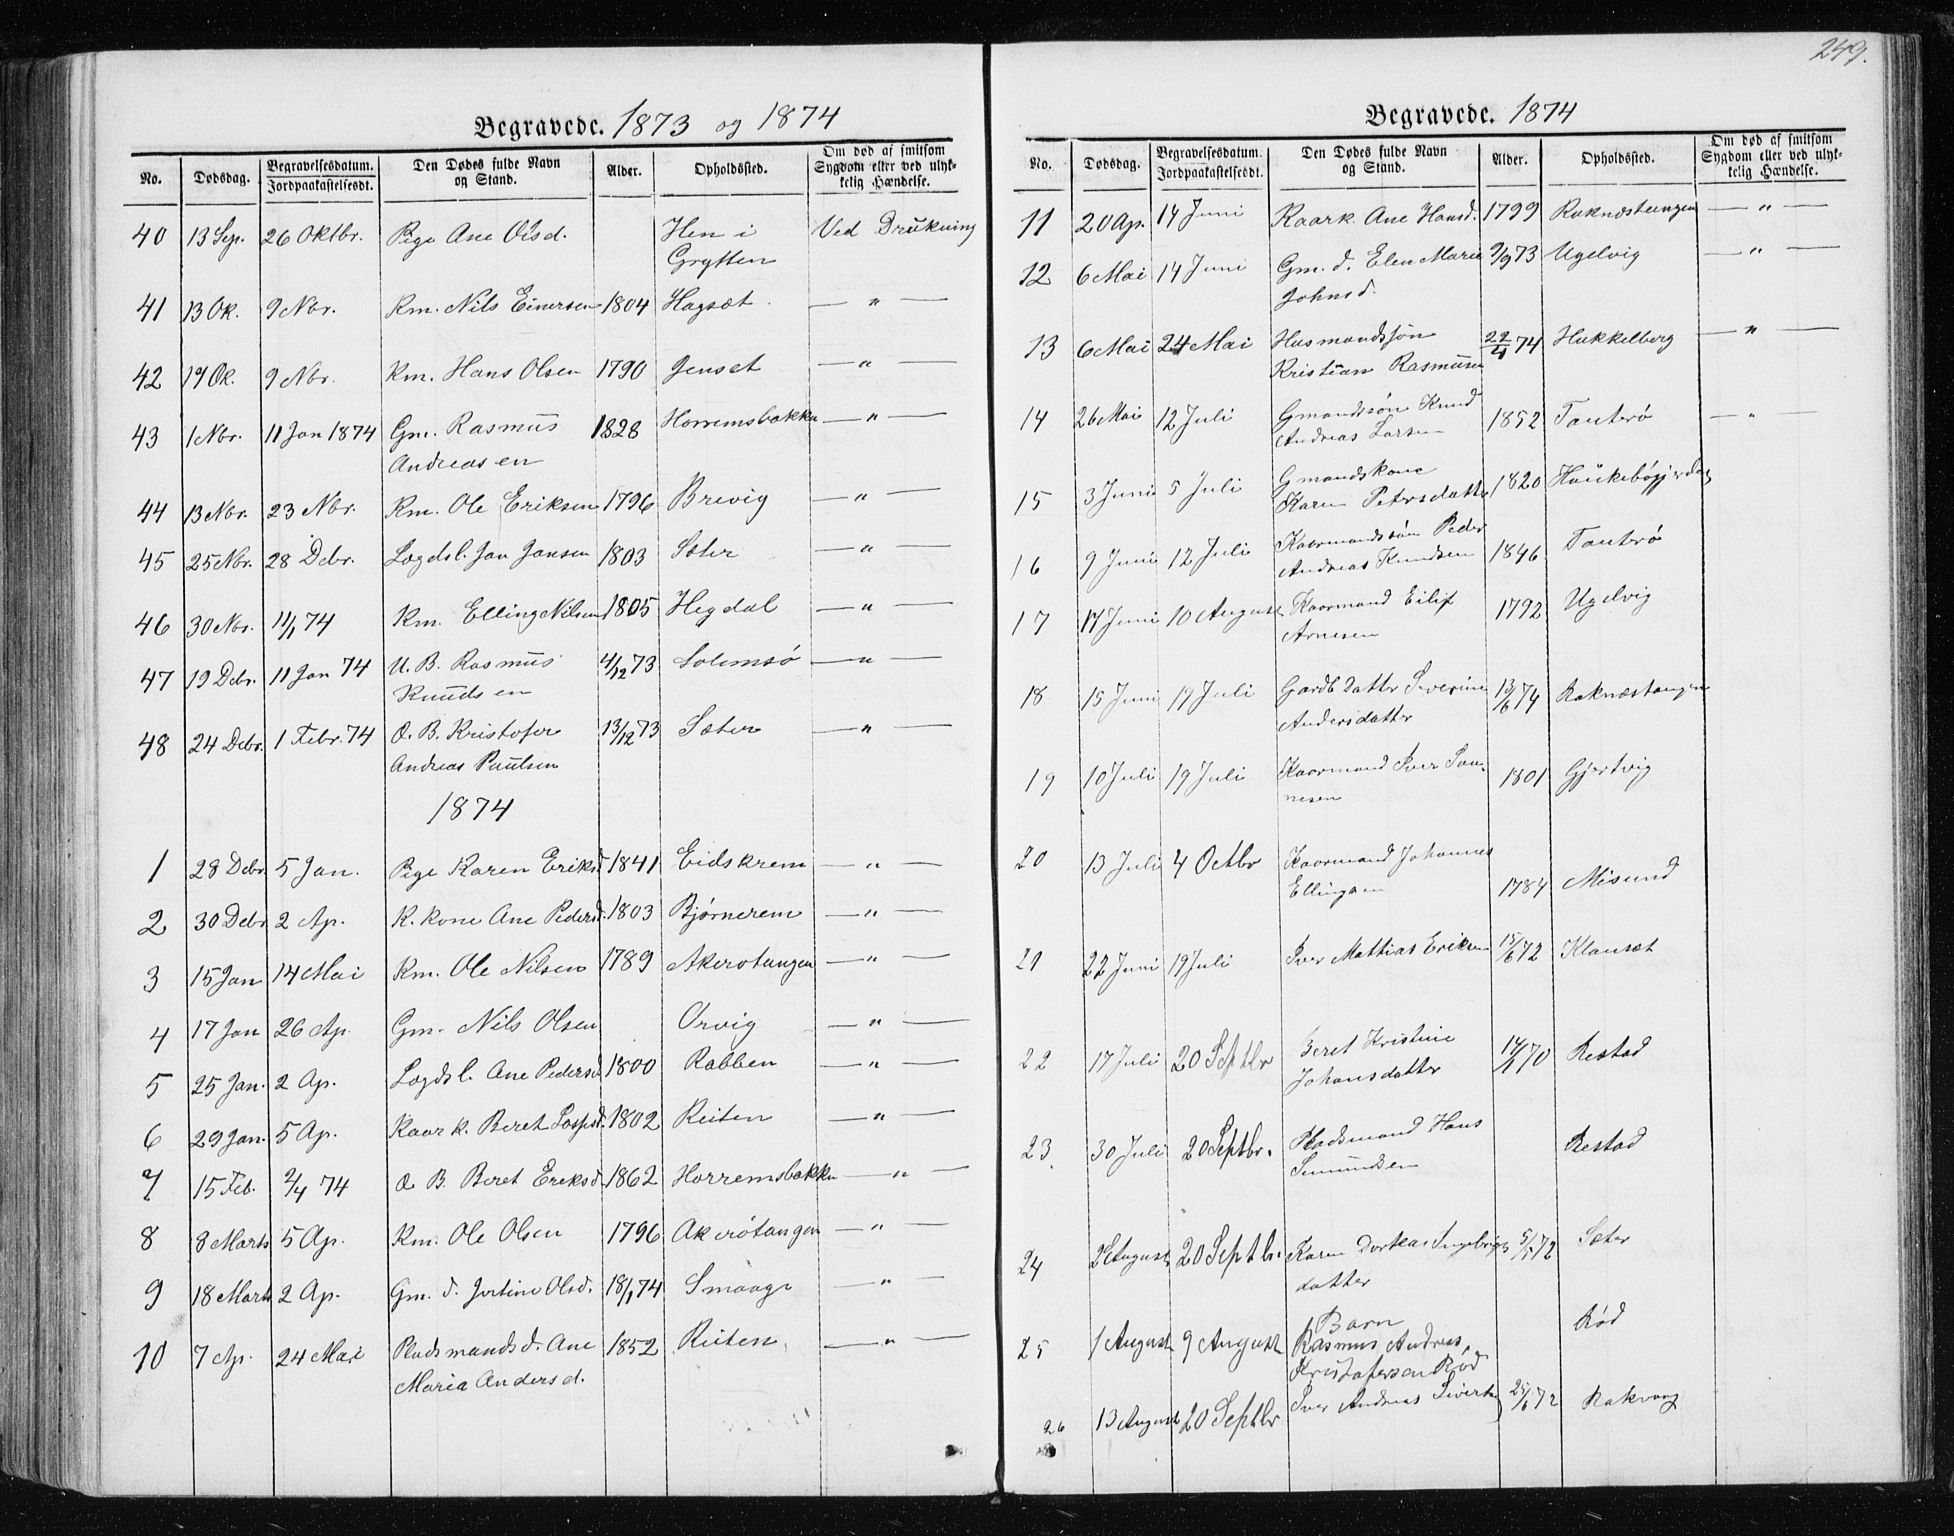 249.
Begravede. 1873 og 1874
No. Dødsdag. Begravelsesdatum. Jordpaakastelsesdt. Den Dødes fulde Navn og Stand. Alder. Opholdssted. Om død af smitsom Sygdom eller ved ulykkelig Hændelse.
40 13 Sep. 26 Oktbr. Pige Ane Olsd. Hen i Ved Drukning
Grytten
41 13 Ok. 9 Nbr. Km. Nils Einersen 1804 Hagsæt — " —
42 19 Ok. 9 Nbr. Km. Hans Olsen 1790 Jenset — " —
43 1 Nbr. 11 Jan 1874 Gm. Rasmus 1828 Horremsbakke — " —
Andreasen
44 13 Nbr. 23 Nbr. Km. Ole Eriksen 1796 Brevig — " —
45 25 Nbr. 28 Debr. Lægdsl. Jan Jansen 1803 Sæter — " —
46 30 Nbr. 11/1 74 Km. Elling Nilsen 1805 Hegdal — " —
47 19 Debr. 11 Jan 74 U. B. Rasmus 4/12 73 Solemsø — " —
Knudsen
48 24 Debr. 1 Febr. 74 Æ. B. Kristofer 13/12 73 Sæter — " —
Andreas Paulsen
1874
1 28 Debr 5 Jan. Pige Karen Eriksd 1841 Eidskrem — " —
2 30 Debr 2 Ap. K. kone Ane Pedersd. 1803 Bjørnerem — " —
3 15 Jan 14 Mai Km. Ole Nilsen 1789 Akerøtangen — " —
4 17 Jan 26 Ap. Gm. Nils Olsen Orvig — " —
5 25 Jan. 2 Ap. Lægdsl. Ane Pedersd 1800 Rabben — " —
6 29 Jan. 5 Ap. Kaark. Beret 1802 Reiten — " —
7 15 Feb. 2/4 74 Æ. B. Beret Eriksd 1862 Horremsbakke — " —
8 8 Marts 5 Ap. Km. Ole Olsen 1796 Akerøtangen — " —
9 18 Marts 2 Ap. Gm. d. Jertine Olsd. 18/1 74 Smaage — " —
10 7 Ap. 24 Mai Pladsmandsd. Ane 1852 Reiten — " —
Maria Andersd.
Begravede. 1874
No. Dødsdag. Begravelsesdatum. Jordpaakastelsesdt. Den Dødes fulde Navn og Stand. Alder. Opholdssted. Om død af smitsom Sygdom eller ved ulykkelig Hændelse.
11 20 Ap. 14 Juni Kaark. Ane Hansd. 1799 Raknæstangen — " —
12 6 Mai 14 Juni Gm. d. Elen Marie 9/9 73 Ugelvig — " —
Johnsd.
13 6 Mai 24 Mai Husmandssøn 22/4 74 Hukkelberg — " —
Kristian Rasmusen
14 26 Mai 12 Juli Gmandssøn Knud 1852 Tauterø — " —
Andreas Larsen
15 3 Juni 5 Juli Gmandskone 1820
Karen Petersdatter
16 9 Juni 12 Juli Kaarmandssøn Peder 1846 Tauterø
Andreas Knudsen
17 17 Juni 10 August Kaarmand Eilif 1792 Ugelvig
Arnesen
18 15 Juni 19 Juli Gardb datter Severine 13/6 74 Raknæstangen
Andersdatter
19 10 Juli 19 Juli Kaarmand Iver 1801 Gjertvig
20 13 Juli 4 Octbr Kaarmand Johannes 1784 Misund
Ellingsen
21 22 Juni 19 Juli Iver Mathias Eriksen 15/6 72 Klauset
22 17 Juli 20 Septbr Beret Kristine 14/1 70 Restad
Johansdatter
23 30 Juli 20 Septbr. Pladsmand Hans Restad
Simundsen
24 2 August 20 Septbr. Karen Dorthea Ingebrigs 5/5 72 Sæter
datter
25 1 August 9 August Barn Rød
Rasmus Andreas
Kristofersen Rød
26 13 August 20 Septbr Iver Andreas Sivertsen 25/6 72 Rakvaag